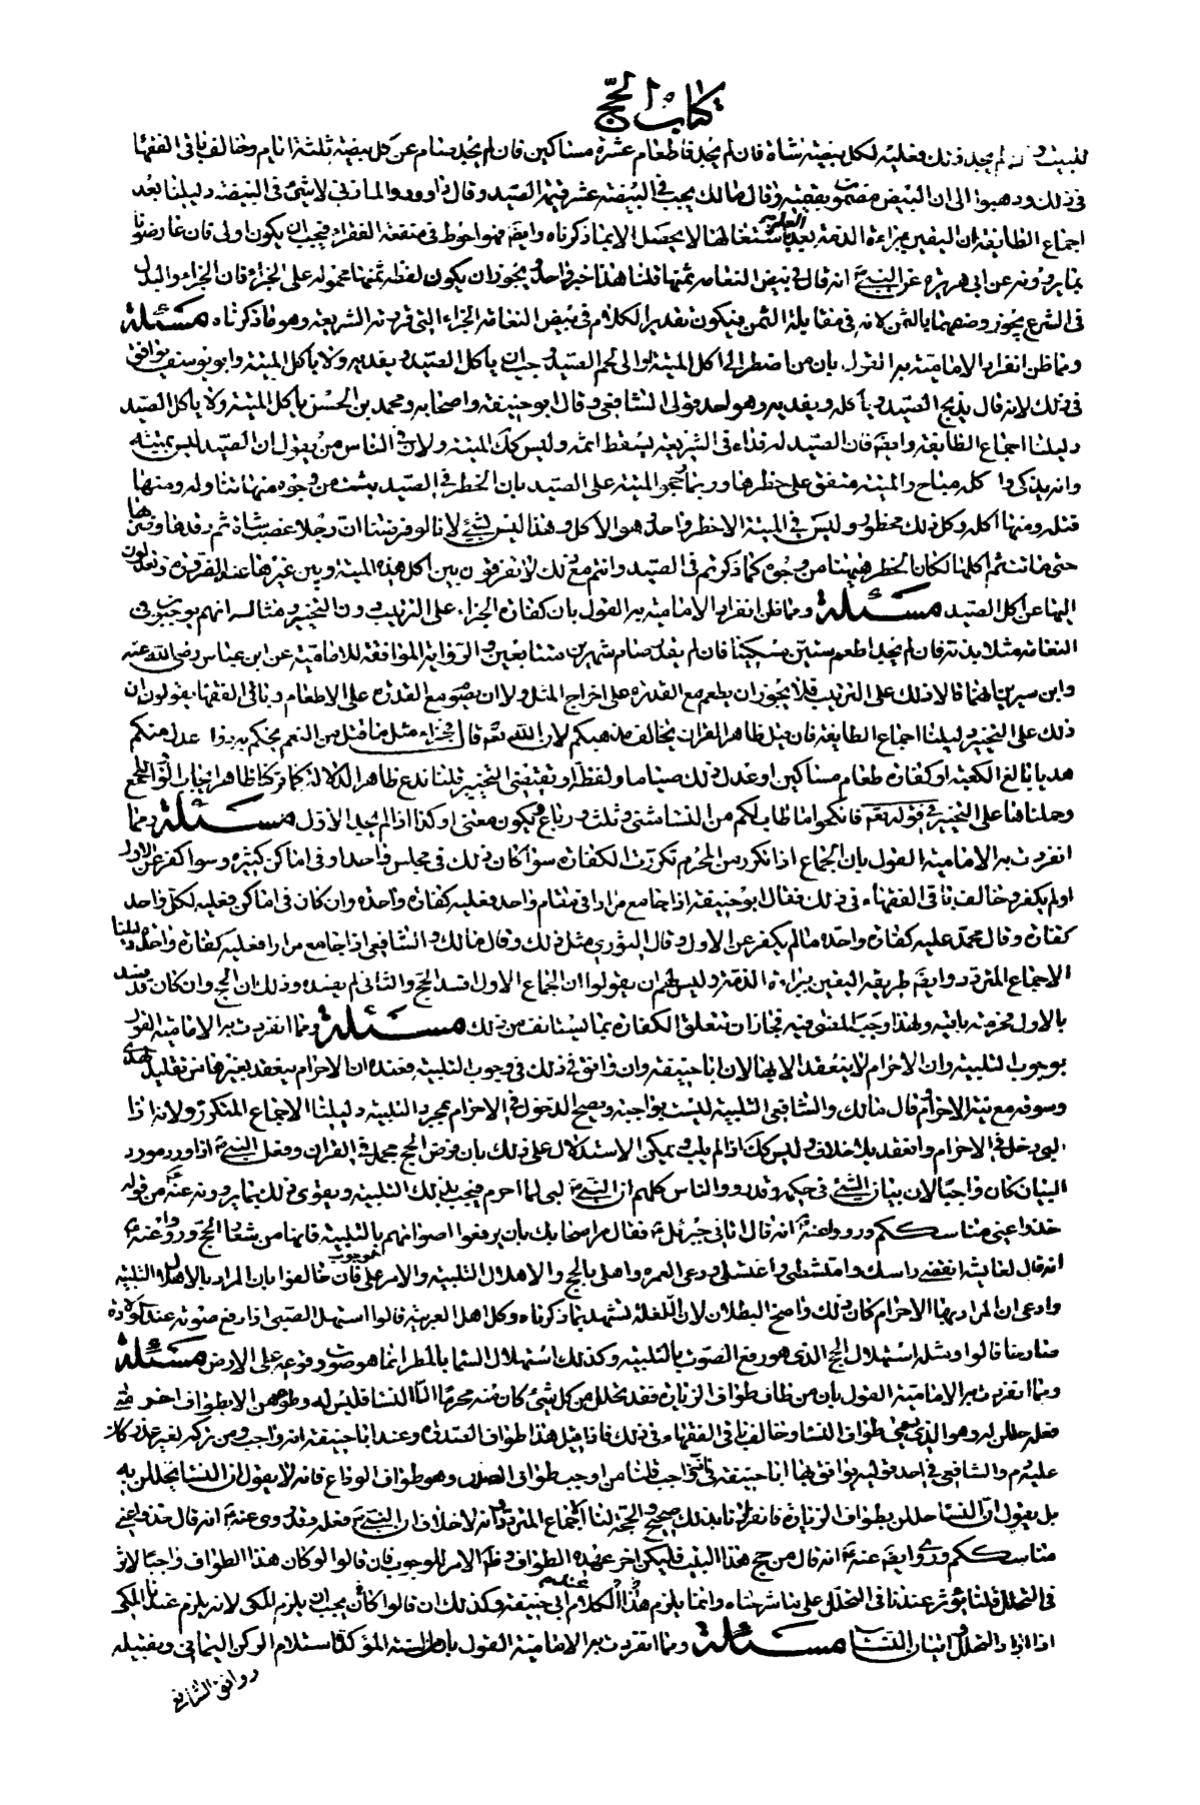 كتاب الحج
للبيت فمن لم يجد ذلك فعليه لكل بيضة شاة فان لم يجد فاطعام عشرة مساكين فان لم يجد صام عن كل بيضة ثلثة ايام وخالف باقى الفقهاء
فى ذلك وذهبوا الى ان البيض مضمون بقيمته وقال مالك يجب فى البيضة عشر قيمة الصيد وقال داوود والمازنى لا شئ فى البيضة دليلنا بعد
اجماع الطايفة ان اليقين ببراءة الذمة بعد العلم باشتغالها لا يحصل الا بما ذكرناه وايضا فهو احوط فى منفعة الفقراء فيجب ان يكون اولى فان عارضونا
بما يروونه عن ابى هريرة عن النبى ص انه قال فى بيض النعامة ثمنها قلنا هذا خبر واحد ويجوز ان يكون لفظة ثمنها محمولة على الجزاء فان الجزاء والبدل
فى الشرع يجوز وصفهما بالثمن لانه فى مقابلة الثمن فيكون تقدير الكلام فى بيض النعامة الجزاء التى قررته الشريعة وهو ما ذكرناه مسئلة
ومما ظن انفراد الامامية به القول بان من اضطر الى اكل الميتة او الى لحم الصيد وجب ان ياكل الصيد ويفديه ولا ياكل الميتة وابو يوسف يوافق
فى ذلك لانه قال يذبح الصيد وياكله ويفديه وهو احد قولى الشافعى وقال ابو حنيفة واصحابه ومحمد بن الحسن ياكل الميتة ولا ياكل الصيد
دليلنا اجماع الطايفة وايضا فان الصيد له فداء فى الشريعة يسقط اثمه وليس كك الميتة ولان فى الناس من يقول ان الصيد ليس بميتة
وانه يذكى و اكله مباح والميتة متفق على حظرها وربما رجحوا الميتة على الصيد بان الحظر فى الصيد يثبت من وجوه منها تناوله ومنها
قتله ومنها اكله وكل ذلك محظور وليس فى الميتة الا حظر واحد وهو الاكل وهذا ليس بشئ لانا لو فرضنا ان رجلا غصب شاة ثم وقذها وضربها
حتى ماتت ثم اكلها لكان الحظر هيهنا من وجوه كما ذكرتم فى الصيد وانتم مع ذلك لا تفرقون بين اكل هذه الميتة وبين غيرها عند الضرورة وتعدلون
اليها عن اكل الصيد مسئلة ومما ظن انفراد الامامية به القول بان كفارة الجزاء على الترتيب دون التخيير ومثاله انهم يوجبون فى
النعامة مثلا بدنة فان لم يجد اطعم ستين مسكينا فان لم يقدر صام شهرين متتابعين والرواية الموافقة للامامية عن ابن عباس رضى الله عنه
وابن سيرين انهما قالا ذلك على الترتيب فلا يجوز ان يطعم مع القدرة على اخراج المثل ولا ان يصوم مع القدرة على الاطعام وباقى الفقهاء يقولون ان
ذلك على التخيير دليلنا اجماع الطايفة فان قيل ظاهر القران يخالف مذهبكم لان الله تعالى قال فجزاء مثل ما قتل من النعم يحكم به ذوا عدل منكم
هديا بالغ الكعبة او كفارة طعام مساكين او عدل ذلك صياما ولفظة او يقتضى التخيير قلنا ندع ظاهر الدلالة كما تركنا ظاهر ايجاب الواو للجمع
وحملناها على التخيير فى قوله تعالى فانكحوا ما طاب لكم من النساء مثنى وثلث ورباع ويكون معنى او كذا اذا لم يجد الاول مسئلة ومما
انفردت به الامامية القول بان الجماع اذا تكرر من المحرم تكررت الكفارة سواء كان ذلك فى مجلس واحد او فى اماكن كثيرة وسواء كفر عن الاول
او لم يكفر وخالف باقى الفقهاء فى ذلك فقال ابو حنيفة اذا جامع مرارا فى مقام واحد فعليه كفارة واحدة وان كان فى اماكن فعليه لكل واحد
كفارة وقال محمد عليه كفارة واحدة ما لم يكفر عن الاول وقال الثورى مثل ذلك وقال مالك والشافعى اذا جامع مرارا فعليه كفارة واحدة دليلنا
الاجماع المتردد وايضا طريقة اليقين ببراءة الذمة وليس لهم ان يقولوا ان الجماع الاول افسد الحج والثانى لم يفسده وذلك ان الحج وان كان قد فسد
بالاول فحرمته باقية ولهذا وجب المضى فيه فجاز ان تتعلق الكفارة بما يستانف من ذلك مسئلة ومما انفردت به الامامية القول
بوجوب التلبية وان الاحرام لا ينعقد الا بها لان ابا حنيفة وان وافق فى ذلك فى وجوب التلبية فعنده ان الاحرام ينعقد بغيرها من تقليد الهدى
وسوقه مع نية الاحرام وقال مالك والشافعى التلبية ليست بواجبة ويصح الدخول فى الاحرام بمجرد التلبية دليلنا الاجماع المتكرر ولانه اذا
لبى دخل فى الاحرام وانعقد بلا خلاف وليس كك اذا لم يلب ويمكن الاستدلال على ذلك بان فرض الحج مجمل فى القران وفعل النبى ص اذا ورد مورد
البيان كان واجبا لان بيان الشئ فى حكمه وقد روى الناس كلهم ان النبى ص لبى لما احرم فيجب بذلك التلبية ويقوى ذلك بما يروونه عنه ع من قوله
خذوا عنى مناسككم ورووا عنه ع انه قال اتانى جبرئيل ع فقال مر اصحابك بان يرفعوا اصواتهم بالتلبية فانها من شعائر الحج ورووا عنه ع
انه قال لعايشة انفضى راسك وامتشطى واغتسلى ودعى العمرة واهلى بالحج والاهلال التلبية والامر على الوجوب فان خالفوا بان المراد بالاهلال التلبية
وادعى ان المراد بها الاحرام كان ذلك واضح البطلان لان اللغة تشهد بما ذكرناه وكل اهل العربية قالوا استهل الصبى اذا رفع صوته عند الولادة
صارخا قالوا ومثله استهلال الحج الذى هو رفع الصوت بالتلبية وكذلك استهلال السماء بالمطر انما هو صوت وقوعه على الارض مسئلة
ومما انفردت به الامامية القول بان من طاف طواف الزيارة فقد تحلل من كل شئ كان منه محرما الا النساء فليس له وطؤهن الا بطواف اخر متى
فعله حللن له وهو الذى يسمى طواف النساء وخالف باقى الفقهاء فى ذلك فاذا قيل هذا طواف الصدر وعند ابا حنيفة انه واجب ومن تركه لغير عذر كان
عليه دم والشافعى فى احد قوليه يوافق ابا حنيفة فى انه واجب قلنا من اوجب طواف الصدر وهو طواف الوداع فانه لا يقول ان النساء يحللن به
بل يقول ان النساء حللن بطواف الزيارة فانفرادنا بذلك صحيح والحجة لنا الاجماع المتردد وانه لا خلاف ان النبى ص فعله وقد روى عنه ص انه قال خذوا عنى
مناسككم وروى ايضا عنه ص انه قال من حج هذا البيت فليكن اخر عهده الطواف وظاهر الامر للوجوب فان قالوا لو كان هذا الطواف واجبا لاثر
فى التحلل قلنا يؤثر عندنا فى التحلل على ما شرحناه وانما يلزم هذا الكلام ابى حنيفة وكذلك ان قالوا كان يجب ان يلزم المكى لانه يلزم عندنا المكى
اذا اراد التحلل واتيان النساء مسئلة ومما انفردت به الامامية القول بان من السنة المؤكدة استلام الركن اليمانى وتقبيله
ووافق الشافعى